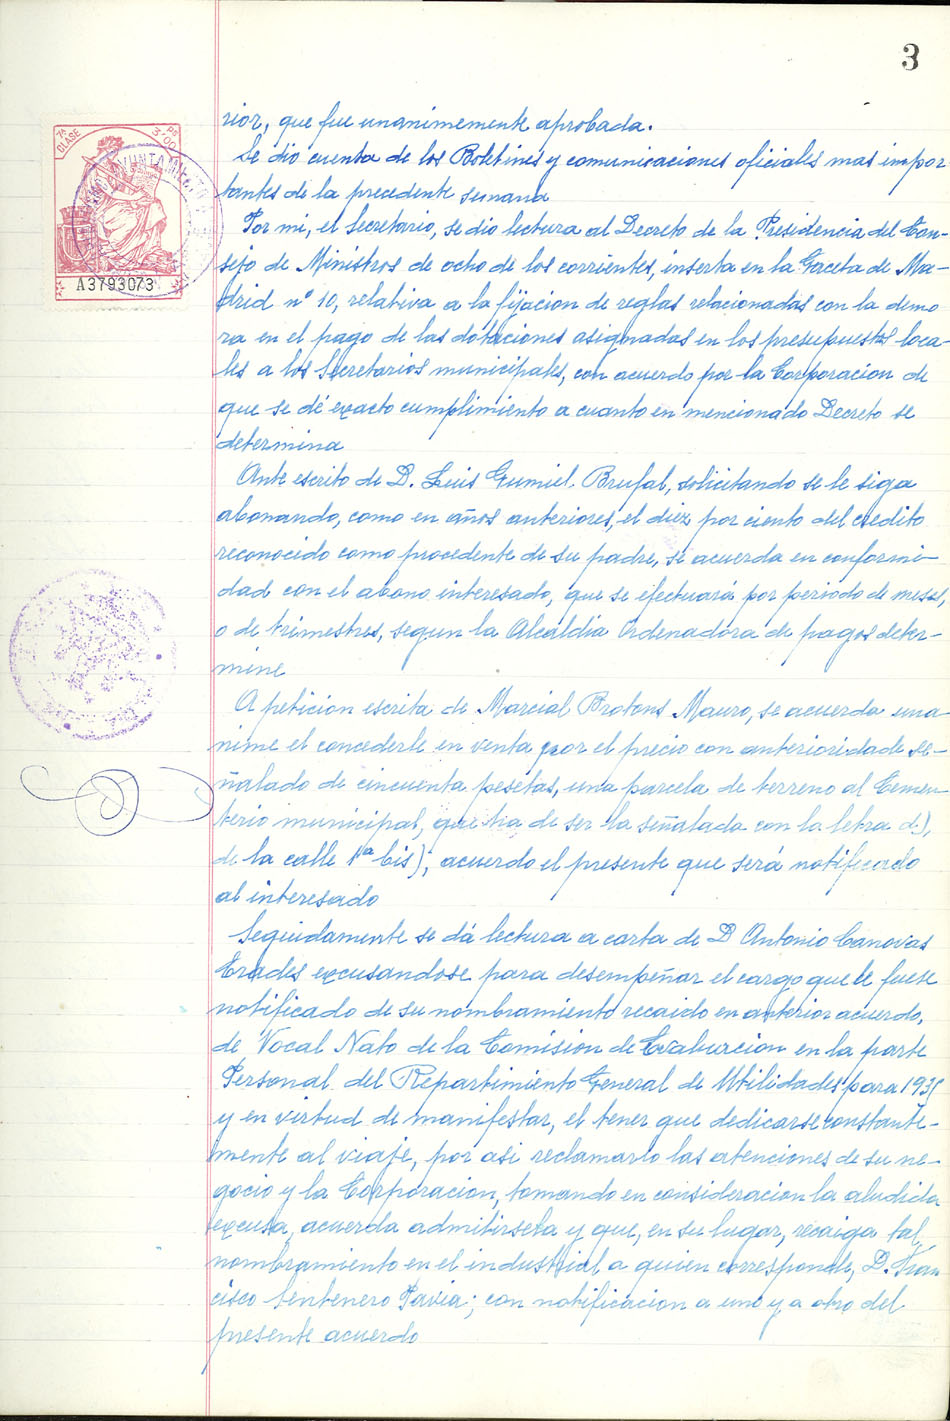 3
7ª CLASE
3'00 PS
AYUNTAMIENTO
A3793073
rior, que fue unanimemente aprobada.
Se dio cuenta de los Boletines y comunicaciones oficiales mas impor
tantes de la precedente semana
Por mi, el Secretario, se dio lectura al Decreto de la Presidencia del Con-
sejo de Ministros de ocho de los corrientes, inserta en la Gaceta de Ma-
drid nº 10, relativa a la fijacion de reglas relacionadas con la demo
ra en el pago de las dotaciones asignadas en los presupuestos loca-
les a los Secretarios municipales, con acuerdo por la Corporacion de
que se dé exacto cumplimiento a cuanto en mencionado Decreto se
determina
Ante escrito de D. Luis Gumiel Brufal, solicitando se le siga
abonando, como en años anteriores, el diez por ciento del credito
reconocido como procedente de su padre, se acuerda en conformi-
dad con el abono interesado, que se efectuará por periodo de meses,
o de trimestres, segun la Alcaldia Ordenadora de pagos deter-
mine
A peticion escrita de Marcial Brotons Mauro, se acuerda una-
nime el concederle en venta por el precio con anterioridad se-
ñalado de cincuenta pesetas, una parcela de terreno al Cemen-
terio municipal, que ha de ser la señalada con la letra d),
de la calle 1ª bis); acuerdo el presente que será notificado
al interesado
Seguidamente se dá lectura a carta de D Antonio Canovas
Erades excusandose para desempeñar el cargo que le fuese
notificado de su nombramiento recaido en anterior acuerdo,
de Vocal Nato de la Comision de Evaluacion en la parte
Personal del Repartimiento General de Utilidades para
y en virtud de manifestar, el tener que dedicarse constante-
mente al viaje, por asi reclamarlo las atenciones de su ne-
gocio y la Corporacion, tomando en consideracion la aludida
excusa, acuerda admitirsela y que, en su lugar, recaiga tal
nombramiento en el industrial a quien corresponde, D. Fran
cisco Sentenero Pavia; con notificacion a uno y a otro del
presente acuerdo